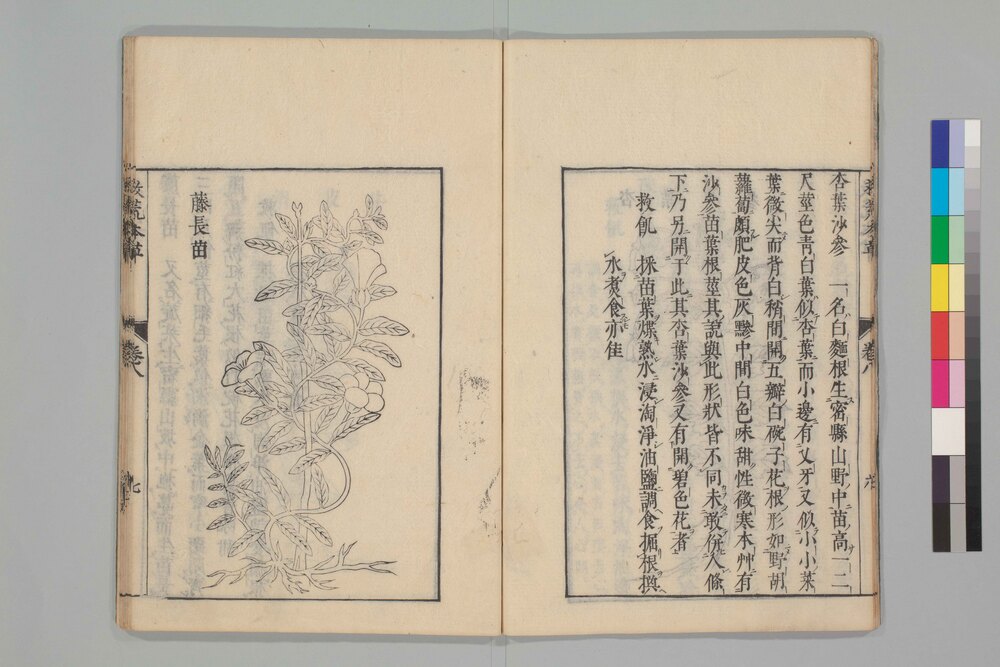 杏葉沙參 一名白麵根生密縣山野中苗高一二
尺莖色青白葉似杏葉而小邊有叉牙又似小小菜
葉微尖而背白稍間開五瓣白碗子花根形如野胡
蘿蔔頗肥皮色灰黲中間白色味甜性微寒本艸有
沙參苗葉根莖其說與此形狀皆不同未敢併入條
下乃另開于此其杏葉沙參又有開碧色花者
救飢 採苗葉煠熟水浸淘淨油鹽調食掘根換
水煑食亦佳
卷八
藤長苗
救荒本草
卷八
九